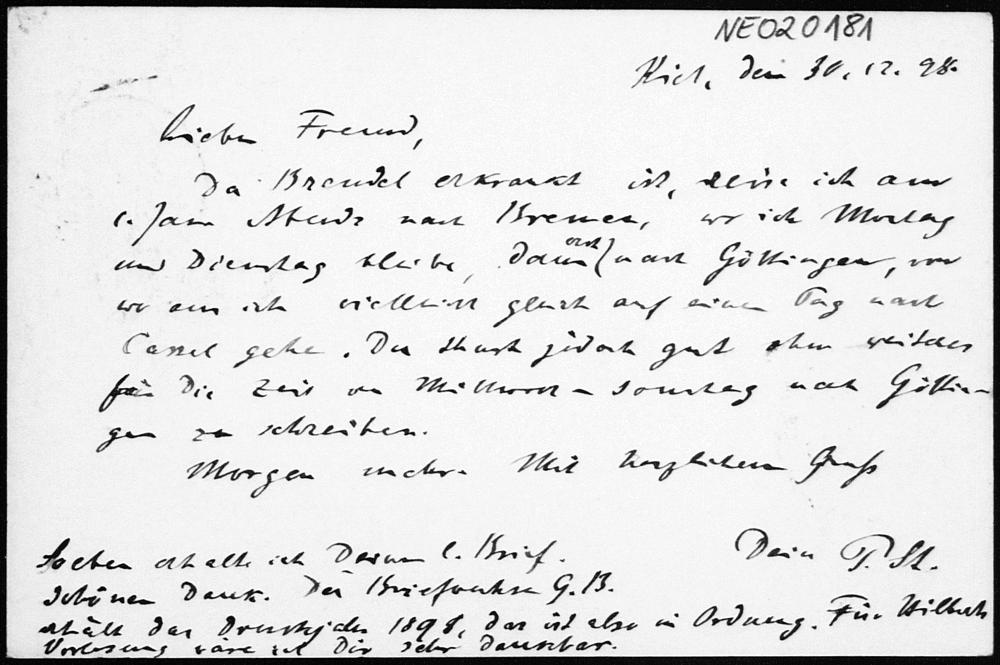 NEO20181
Kiel, den 30.12.98.
Lieber Freund,
Da Brendel erkrankt ist, reise ich am
1. Jan Abends nach Bremen, wo ich Montag
und Dienstag bleibe, dann erst nach Göttingen, von
wo aus ich vielleicht gleich auf einen Tag nach
Cassel gehe. Du thust jedoch gut ohne weiteres
für die Zeit von Mittwoch – Sonntag nach Göttin-
gen zu schreiben.
Morgen mehr. Mit herzlichem Gruß
Dein P. St.
Soeben erhalte ich Deinen l. Brief.
Schönen Dank. Der Briefwechsel G. B.
erhält das Druckjahr 1898, das ist also in Ordnung. Für Hilberts
Vorlesung wäre ich Dir sehr dankbar.